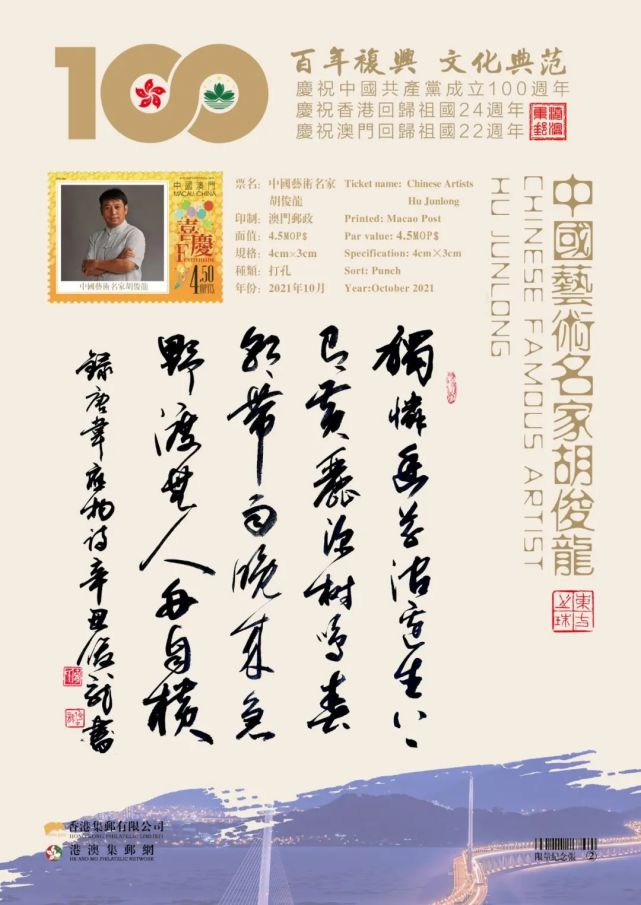 100
百年複興 文化典范
慶祝中國共產黨成立100週年
慶祝香港回歸祖國24週年
慶祝澳門回歸祖國22週年
中國澳門
MACAU, CHINA
喜慶
FESTIVIDADE
4.50
中國藝術名家胡俊龍
票名：中國藝術名家 Ticket name: Chinese Artists
胡俊龍 Hu Junlong
印制：澳門郵政 Printed: Macao Post
面值：4.5MOP$ Par value: 4.5MOP$
規格：4cm×3cm Specification: 4cm×3cm
種類：打孔 Sort: Punch
年份：2021年10月 Year:October 2021
中國藝術名家胡俊龍
CHINESE FAMOUS ARTIST
HU JUNLONG
東方之珠
獨憐幽草澗邊生上
有黃鸝深樹鳴春
潮帶雨晚來急
野渡無人舟自橫
錄唐韋應物詩辛丑俊龍書
香港集郵有限公司
HONGKONG PHILATELIC LIMITED
港澳集郵網
HK AND MO PHILATELIC NETWORK
限量紀念張 ②